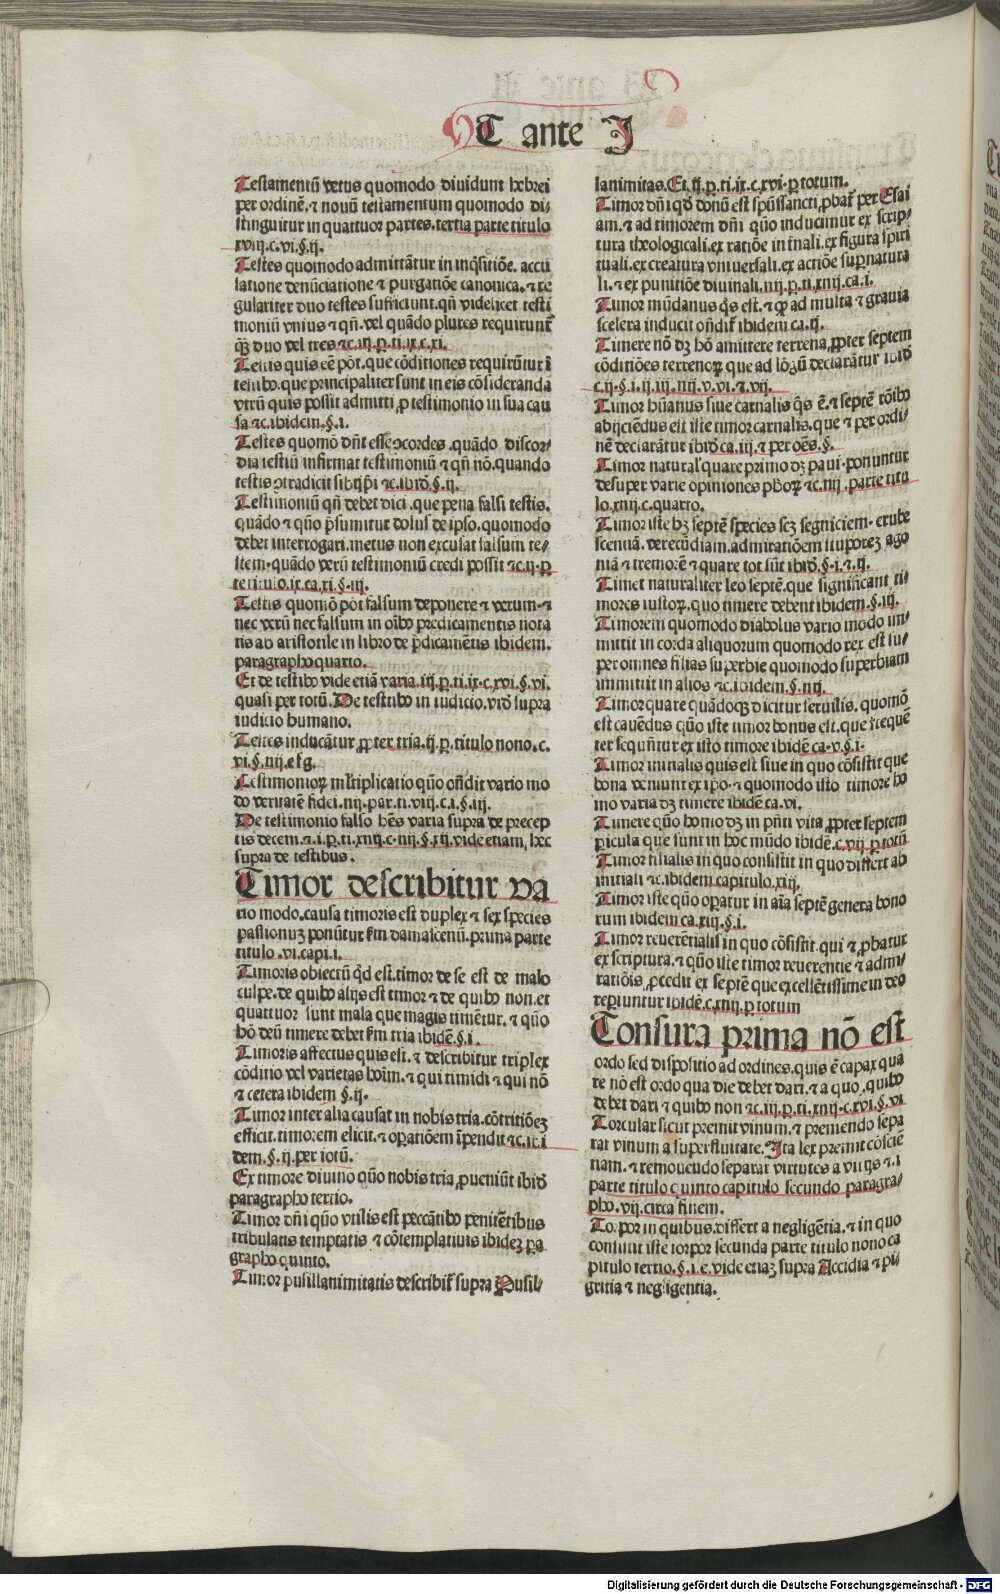 T ante J
Testamentū vetus quomodo diuidunt hebrei
per ordinē.⁊ nouū testamentum quomodo di-
stinguitur in quattuor partes.tertia parte titulo
xviij.c.vi.§.ij.
Testes quomodo admittātur in inq̄sitiōe. accu
satione denūciatione ⁊ purgatiōe canonica.⁊ re
gulariter duo testes sufficiunt.qn̄ videlicet testi
moniū vnius ⁊ qn̄.vel quādo plures requirunt̄
q̄ꝫ duo vel tres ⁊c.iij.ꝑ.ti.ix.c.xi.
Testis quis eē pōt.que cōditiones requirūtur ī
testibꝰ.que principaliter sunt in eis cōsideranda
vtrū quis possit admitti ꝓ testimonio in sua cau
sa ⁊c.ibidem.§.i.
Testes quomō dn̄t esse ꝯcordes.quādo discor-
dia testiū infirmat testimoniū ⁊ qn̄ nō.quando
testis ꝯtradicit sibijp̄i ⁊c.ibid̄.§.ij.
Testimoniū qn̄ debet dici.que pena falsi testis.
quādo ⁊ quō p̄sumitur dolus de ipso.quomodo
debet interrogari.metus non excusat falsum te-
stem.quādo verū testimoniū credi possit ⁊c.ij.ꝑ
te titulo.ix.ca.xi.§.iij.
Testis quomō pōt falsum deponere ⁊ verum.⁊
nec verū nec falsum in oībꝰ predicamentis nota
tis ab aristotile in libro de p̄dicamētis ibidem.
paragrapho quarto.
Et de testibꝰ vide etiā varia.iij.ꝑ.ti.ix.c.xvi.§.vi.
quasi per totū. De testibꝰ in iudicio.vid̄ supra
iudicio humano.
Testes inducātur ꝓpter tria.ij.ꝑ.titulo nono.c.
vi.§.iiij.e f g.
Testimonioꝝ ml̄tiplicatio quō on̄dit vario mo
do veritatē fidei.iiij.par.ti.viij.c.i.§.iij.
De testimonio falso hēs varia supra de precep
tis decem.⁊.i.ꝑ.ti.xiiij.c.iiij.§.xij.vide etiam.hec
supra de testibus.
Timor describitur va
rio modo.causa timoris est duplex ⁊ sex species
passionuꝫ ponūtur ẜm damascenū.prima parte
titulo.vi.capi.i.
Timoris obiectū qd̄ est.timor de se est de malo
culpe.de quibꝰ alijs est timor ⁊ de quibꝰ non.et
quattuor sunt mala que magis timētur.⁊ quō
hō deū timere debet ẜm tria ibidē.§.i.
Timoris affectus quis est.⁊ describitur triplex
cōditio vel varietas hoīm.⁊ qui timidi ⁊ qui nō
⁊ cetera ibidem §.ij.
Timor inter alia causat in nobis tria.cōtritiōeꝫ
efficit.timorem elicit.⁊ oꝑatiōem īpendit ⁊c.ibi
dem.§.ij.per totū.
Ex timore diuino quō nobis tria ꝓueniūt ibid̄
paragrapho tertio.
Timor dn̄i quō vtilis est peccātibꝰ penitētibus
tribulatis temptatis ⁊ cōtemplatiuis ibideꝫ pa
grapho quinto.
Timor pusillanimitatis describit̄ supra Pusil-
lanimitas.Et.ij.ꝑ.ti.ix.c.xvi.ꝑ totum.
Timor dn̄i qd̄ donū est sp̄ūssancti ꝓbat̄ per Esai
am.⁊ ad timorem dn̄i quō inducimur ex scrip-
tura theologicali.ex ratiōe in t̄nali.ex figura sp̄iri
tuali.ex creatura vniuersali.ex actiōe suꝑnatura
li.⁊ ex punitiōe diuinali.iiij.ꝑ.ti.xiiij.ca.i.
Timor mūdanus q̄s est.⁊ qꝙ ad multa ⁊ grauia
scelera inducit on̄dit̄ ibidem ca.ij.
Timere nō dꝫ hō amittere terrena ꝓpter septem
cōditiōes terrenoꝝ que ad lōgū declarātur ibid̄
c.ij.§.i.ij.iij.iiij.v.vi.⁊.vij.
Timor hūanus siue carnalis q̄s ē.⁊ septē rōībꝰ
abijciēdus est iste timor carnalis.que ⁊ per ordi-
nē declarātur ibid̄ ca.iij.⁊ per oēs.§.
Timor natural̓ quare primo dꝫ paui.ponuntur
desuper varie opiniones ph̄oꝝ ⁊c.iiij.parte titu
lo.xiiij.c.quarto.
Timor iste hꝫ septē species scꝫ segniciem.erube
scentiā.verecūdiam.admiratiōem stuporeꝫ ago
niā ⁊ tremorē ⁊ quare tot sūt ibid̄.§.i.⁊.ij.
Timet naturaliter leo septē.que significant ti-
mores iustoꝝ.quo timere debent ibidem.§.iij.
Timorem quomodo diabolus vario modo im-
mittit in corda aliquorum quomodo rex est su-
per omnes filias superbie quomodo superbiam
immittit in alios ⁊c.ibidem.§.iiij.
Timor quare quādoqꝫ dicitur seruilis. quomō
est cauēdus quō iste timor bonus est.que freqūe
ter sequn̄tur ex isto timore ibidē ca.v.§.i.
Timor initialis quis est siue in quo cōsistit que
bona veniunt ex ip̄o.⁊ quomodo isto timore ho
mo varia dꝫ timere ibidē ca.vi.
Timere quō homo dꝫ in p̄n̄ti vita ꝓpter septem
ꝑicula que sunt in hoc mūdo ibidē.c.vij ꝑ totū
Timor filialis in quo consistit in quo differt ab
initiali ⁊c.ibidem capitulo.xiij.
Timor iste quō oꝑatur in aīa septē genera bono
rum ibidem ca.xiij.§.i.
Timor reuerētialis in quo cōsistit.qui ⁊ ꝓbatur
ex scriptura.⁊ quō iste timor reuerentie ⁊ admi-
ratiōis ꝓcedit ex septē que excellētissime in deo
reperiuntur ibidē.c.xiiij.ꝑ totum
Tonsura prima nō est
ordo sed dispositio ad ordines.quis ē capax qua
re nō est ordo qua die debet dari.⁊ a quo.quibꝰ
debet dari ⁊ quibꝰ non ⁊c.iij.ꝑ.ti.xiiij.c.xvi.§.vi
Torcular sicut premit vinum.⁊ premendo sepa
rat vinum a superfluitate. Ita lex premit cōscie
tiam.⁊ remouendo separat virtutes a vitijs ⁊.i
parte titulo quinto capitulo secundo paragra-
pho.vij.circa finem.
Torpor in quibus.differt a negligētia.⁊ in quo
consistit iste torpor secunda parte titulo nono ca
pitulo tertio.§.i.e.vide etiaꝫ supra Accidia ⁊ pi-
gritia ⁊ negligentia.
Digitalisierung gefördert durch die Deutsche Forschungsgemeinschaft - DFG